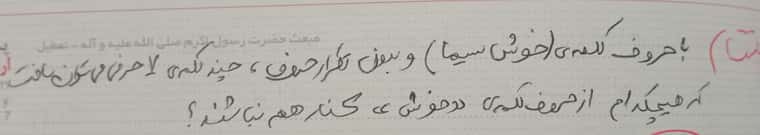 مبعث حضرت رسول اکرم صلی الله علیه و آله - تعطیل
با حروف کلمه‌ی (خوش سیما) و بدون تکرار حروف، چند کلمه‌ی ۷ حرفی می‌توان ساخت
که هیچکدام از حروف کلمه‌ی «خوش» کنار هم نباشند؟